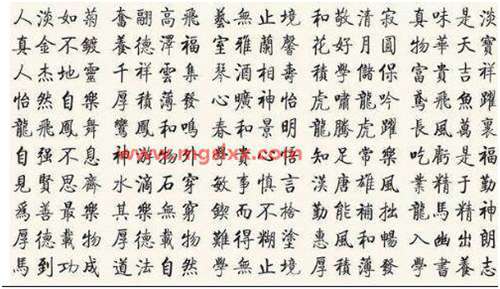 人淡如菊 奮翮高飛 藝無止境 和敬清寂 真味是淡
真金不鍍 養德澤福 室雅蘭馨 花好月圓 物華天寶
人杰地靈 千祥雲集 琴酒相壽 積學儲保 富貴吉祥
怡然自樂 厚積薄發 心曠神怡 虎嘯龍吟 鳶飛魚躍
龍飛鳳舞 鸞鳳和鳴 春和景明 龍騰虎躍 長風萬裏
自强不息 神 物 心悟 知足常樂 吃虧是福
見賢思齊 水滴石穿 敏事慎言 漢唐雄風 業精于勤
爲善最樂 其樂無窮 鍥而不捨 勤能補拙 龍馬精神
厚德載物 厚德載物 難得糊塗 惠風和暢 入幽出朗
馬到功成 道法自然 學無止境 厚積薄發 學書養志